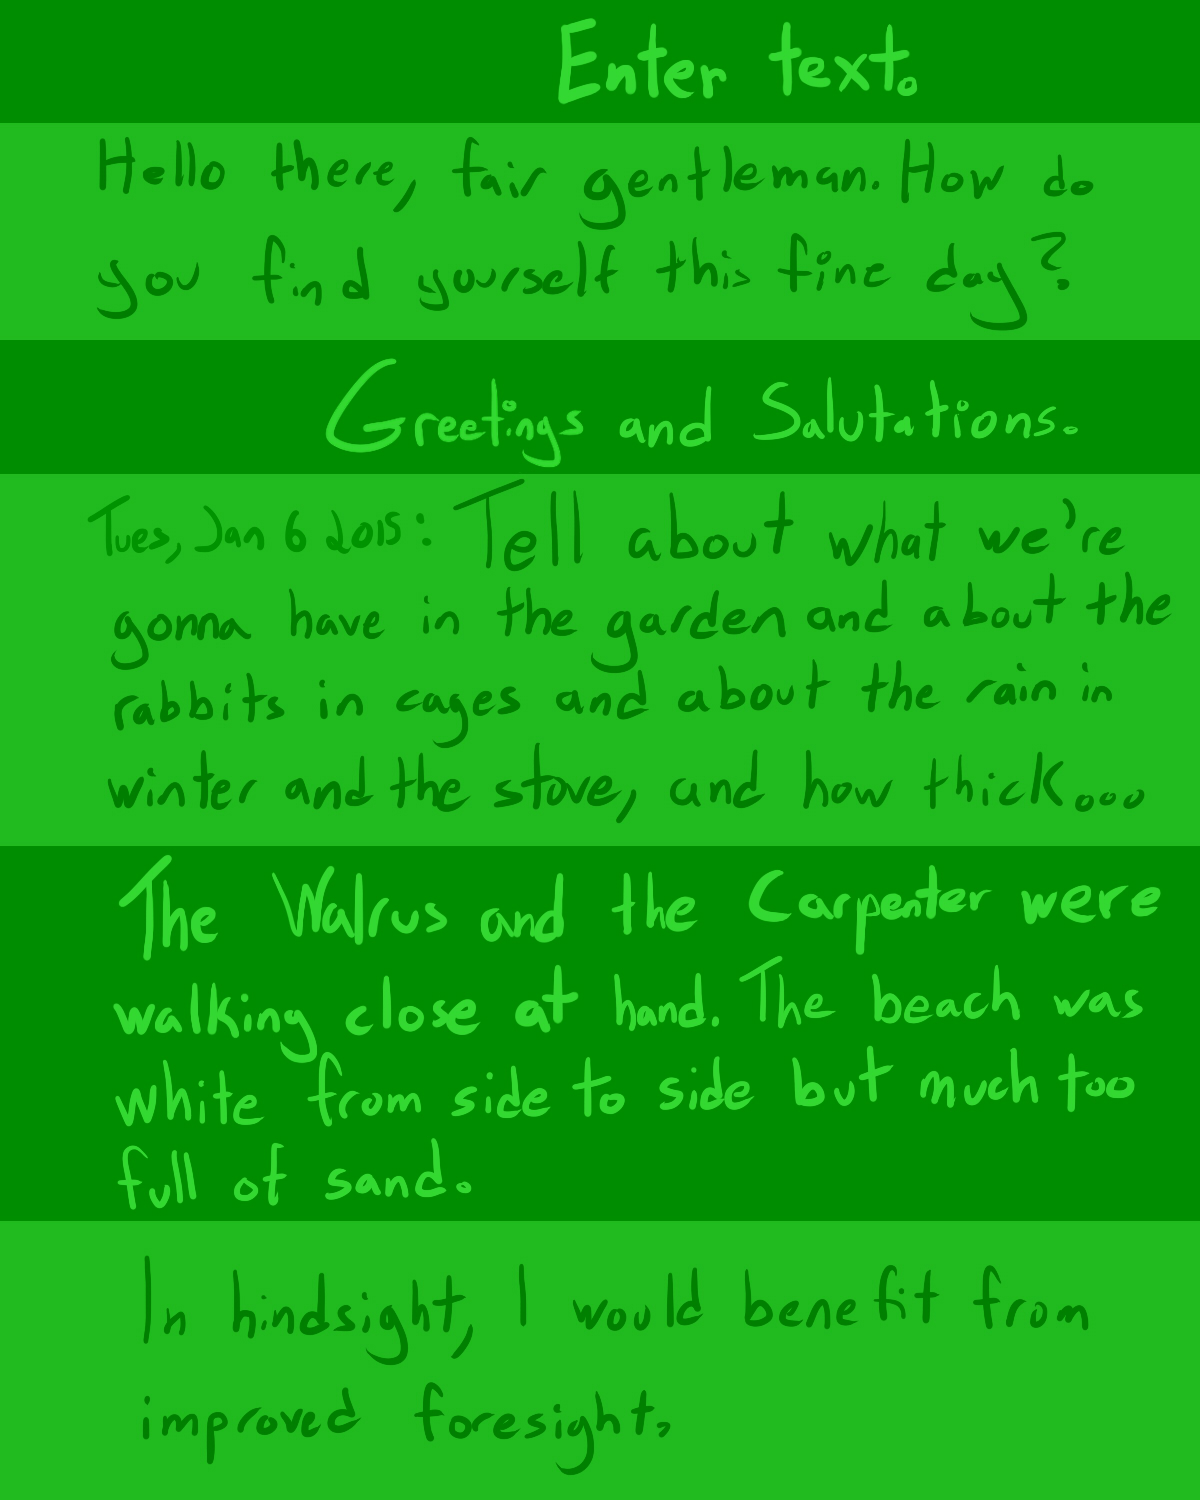 Enter text.
Hello there, fair gentleman. How do
you find yourself this fine day?
Greetings and Salutations.
Tues, Jan 6 2015: Tell about what we're
gonna have in the garden and about the
rabbits in cages and about the rain in
winter and the stove, and how thick...
The Walrus and the Carpenter were
walking close at hand. The beach was
white from side to side but much too
full of sand.
In hindsight, I would benefit from
improved foresight,